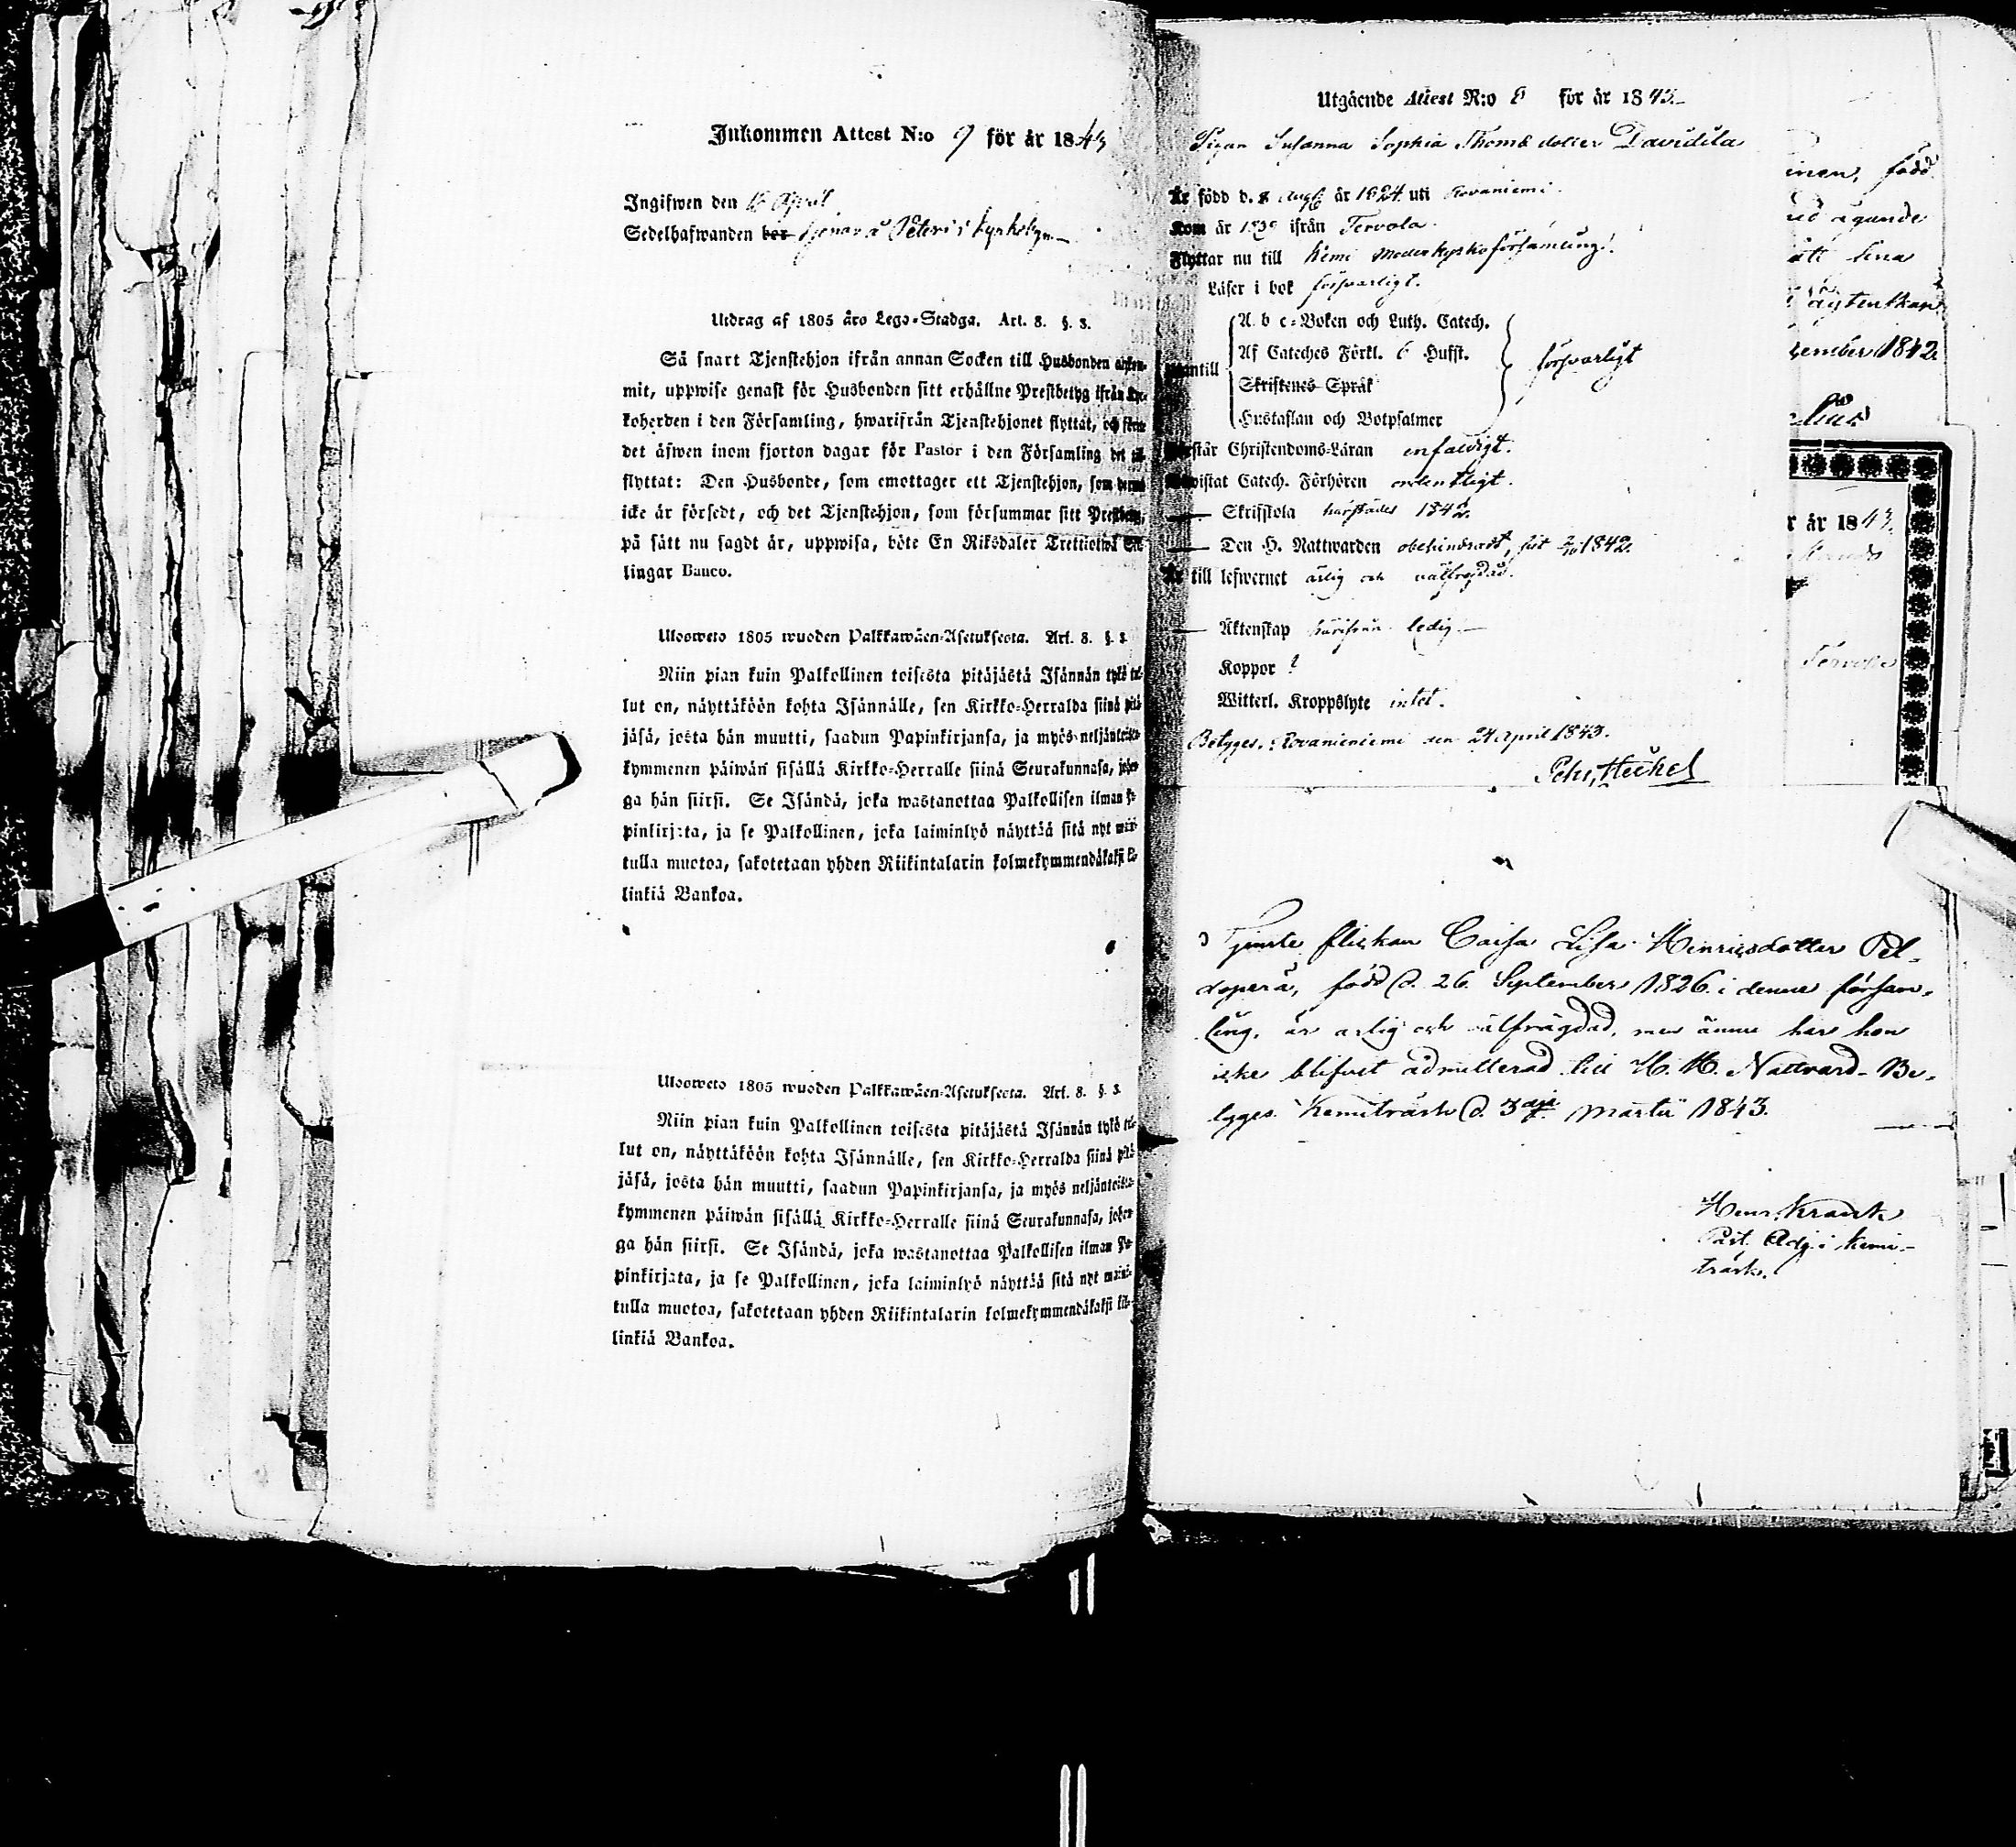 Inkommen Attest N:o 9 för år 1843
Ingifwen den April
Sedelhafwanden bor tjenar å Peteri i kyrkobyn
Utdrag af 1805 års Lego-Stadga. Art. 8. §. 3.
Så snart Tjenstehjon ifrån annan Socken till Husbonden ankom-
mit, uppwise genast för Husbonden sitt erhållne Prestbetyg ifrån Kyr-
koherden i den Församling, hwarifrån Tjenstehjonet flyttat, och
det äfwen inom fjorton dagar för Pastor i den Församling det
flyttat: Den Husbonde, som emottager ett Tjenstehjon, som
icke är försedt, och det Tjenstehjon, som försummar sitt Prestbetyg,
på sätt nu sagdt är, uppwisa, böte En Riksdaler Trettiotwå Skil-
lingar Banco.
Ulosweto 1805 wuoden Palkkawäen-Asetuksesta. Art. 8. §. 3.
Niin pian kuin Palkollinen toisesta pitäjästä Isännän tykö tul-
lut on, näyttäköön kohta Isännälle, sen Kirkko-Herralda siinä pitä-
jäsä, josta hän muutti, saadun Papinkirjansa, ja myös neljäntoista-
kymmenen päiwän sisällä Kirkko-Herralle siinä Seurakunnasa, johon-
ga hän siirsi. Se Isändä, joka wastanottaa Palkollisen ilman Pa-
pinkirjata, ja se Palkollinen, joka laiminlyö näyttää sitä nyt maini-
tulla muotoa, sakotetaan yhden Riikintalarin kolmekymmendäkaksi kil-
linkiä Bankoa.
Ulosweto 1805 wuoden Palkkawäen-Asetuksesta. Art. 8. §. 3.
Niin pian kuin Palkollinen toisesta pitäjästä Isännän tykö tul-
lut on, näyttäköön kohta Isännälle, sen Kirkko-Herralda siinä pitä-
jäsä, josta hän muutti, saadun Papinkirjansa, ja myös neljäntoista-
kymmenen päiwän sisällä Kirkko-Herralle siinä Seurakunnasa, johon-
ga hän siirsi. Se Isändä, joka wastanottaa Palkollisen ilman Pa-
pinkirjata, ja se Palkollinen, joka laiminlyö näyttää sitä nyt maini-
tulla muotoa, sakotetaan yhden Riikintalarin kolmekymmendäkaksi kil-
linkiä Bankoa.
Utgående Attest N:o 8 för år 1843.
Pigan Susanna Sophia Thomæ dotter Davidila
Är född d. 8 Aug. år 1824 uti Rovaniemi.
Kom år ifrån Tervola.
Flyttar nu till Kemi Moderkyrkoförsamling.
Läser i bok försvarligt.
A b c-Boken och Luth. Catech.
Af Cateches Förkl. 6 Hufst. försvarligt
Skriftenes Språk
Hustaflan och Botpsalmer
Förstår Christendoms-Läran enfaldigt.
Bewistat Catech. Förhören ordentligt.
Skriftskola härstädes 1842.
Den H. Nattwarden obehindradt, sist 1842.
Är till lefwernet ärlig och välfrejdad.
Äktenskap härifrån ledig.
Koppor
Witterl. Kroppslyte intet.
Betyges. Rovaniemi den 21 April 1843.
Petr. Heickel
inen, född
ägande
sina
tember 1842.
r år 1843.
Tervola
Tjenste flickan Caisa Lisa Henricsdotter Pel-
doperä, född d. 26 September 1826 i denne försam-
ling, är ärlig och välfrägdad, men ännu har hon
icke blifvit admitterad till H. H. Nattvard. Be-
tyges. Kemiträsk d. 3dje Martii 1843.
Henr. Krank
Past. Adj. i Kemi-
träsk.